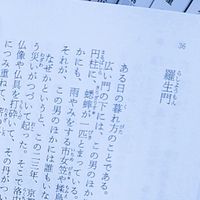 36
羅生門
らしょうもん
ある日の暮れ方のことである。
広い門の下には、この男のほか
円柱に、蟋蟀が一匹とまってい
かにも、雨やみをする市女笠や揉烏
それが、この男のほかには誰もい
なぜかというと、この二三年、京
う災いがつづいて起った。そこで洛中
仏像や仏具を打砕いて、その丹がつい
につみ重ねて、